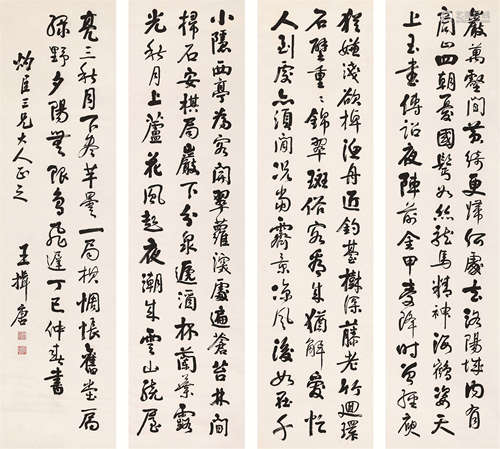 小隱西亭為客開翠蘿深處遍蒼苔林間
掃石安棋局巖下分泉遞酒杯蘭葉露
光秋月上蘆花風起夜潮來雲山繞屋
猶嫌淺欲棹漁舟近釣臺樹深藤老竹迴環
石壁重〻錦翠斑俗客看來猶解愛忙
人到處亦須閒況當霽景涼風後如在千
巖萬壑間黃綺更歸何處去洛陽城內有
商山四朝憂國鬢如絲龍馬精神海鶴姿天
上玉書傳詔夜陣前金甲受降時曾經庾
亮三秋月下盡羊曇一局棋惆悵舊堂扃
綠野夕陽無限鳥飛遲丁巳仲春書
臣三兄大人正之
王揖唐